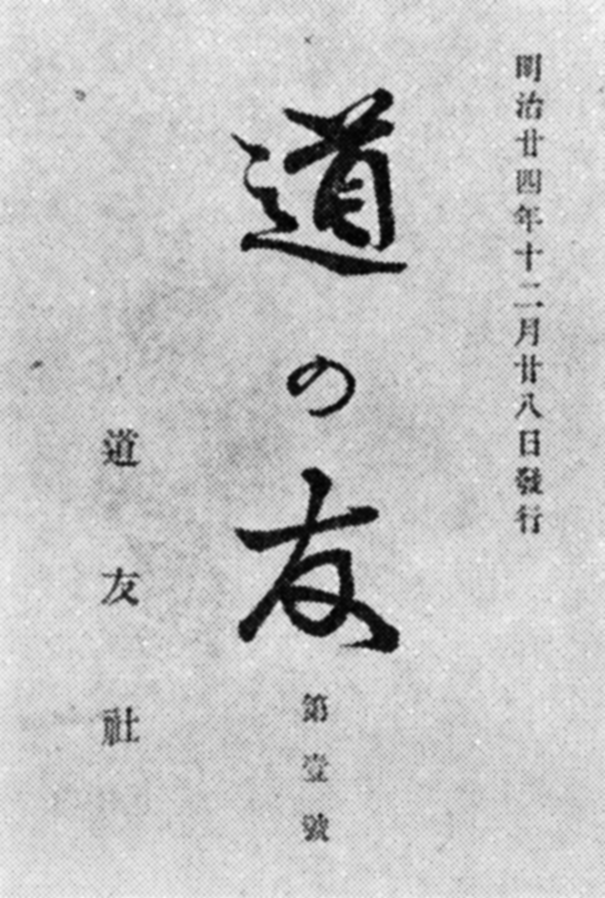 明治廿四年十二月廿八日發行
道の友
第壹號
道友社